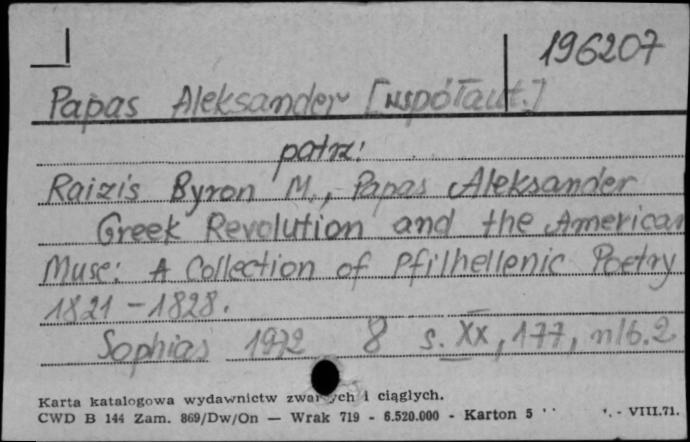 196207
Papas Aleksander [współaut.]
patrz:
Raizis Byron M., Papas Aleksander
Greek Revolution and the American
Muse: A Collection of Pfilhellenic Poetry
1821 - 1828.
Sophias 1972 8 s. XX, 177, nlb. 2
Karta katalogowa wydawnictw zwartych i ciągłych.
CWD B 144 Zam. 869/Dw/On — Wrak 719 - 6.520.000 - Karton 5 - VIII.71.